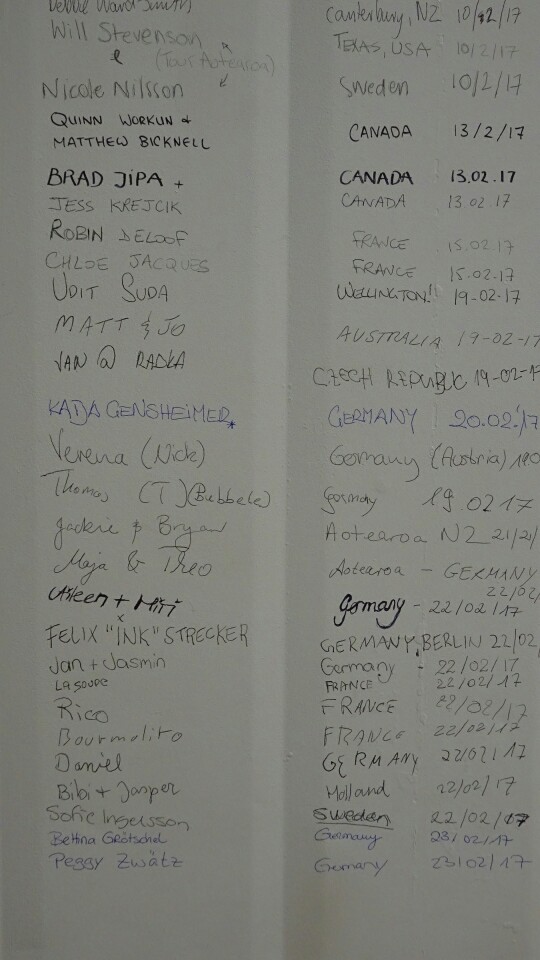 Debbie Ward-Smith Canterbury, NZ 10/02/17
Will Stevenson TEXAS, USA 10/2/17
& (Tour Aotearoa)
Nicole Nilsson Sweden 10/2/17
QUINN WORKUN &
MATTHEW BICKNELL CANADA 13/2/17
BRAD JIPA + CANADA 13.02.17
JESS KREJCIK CANADA 13.02.17
ROBIN DELOOF FRANCE 15.02.17
CHLOE JACQUES FRANCE 15.02.17
UDIT SUDA WELLINGTON!! 19-02-17
MATT & JO AUSTRALIA 19-02-17
JAN @ RADKA CZECH REPUBLIC 19-02-17
KADJA GENSHEIMER GERMANY 20.02.17
Verena (Nick) Germany (Austria)
Thomas (T) (Bubbele) Germany 19.02 17
Jackie & Bryan Aotearoa NZ 21/2/
Maja & Theo Aotearoa - GERMANY 22/02/
Aileen + Miri Germany - 22/02/17
FELIX "INK" STRECKER GERMANY, BERLIN 22/02/
Jan + Jasmin Germany - 22/02/17
La soupe FRANCE 22/02/17
Rico FRANCE 22/02/17
Bourmalito FRANCE 22/02/17
Daniel GERMANY 22/02/17
Bibi + Jasper Holland 22/02/17
Sofie Ingelsson Sweden 22/02/17
Bettina Grötschel Germany 23/02/17
Peggy Zwätz Germany 23/02/17